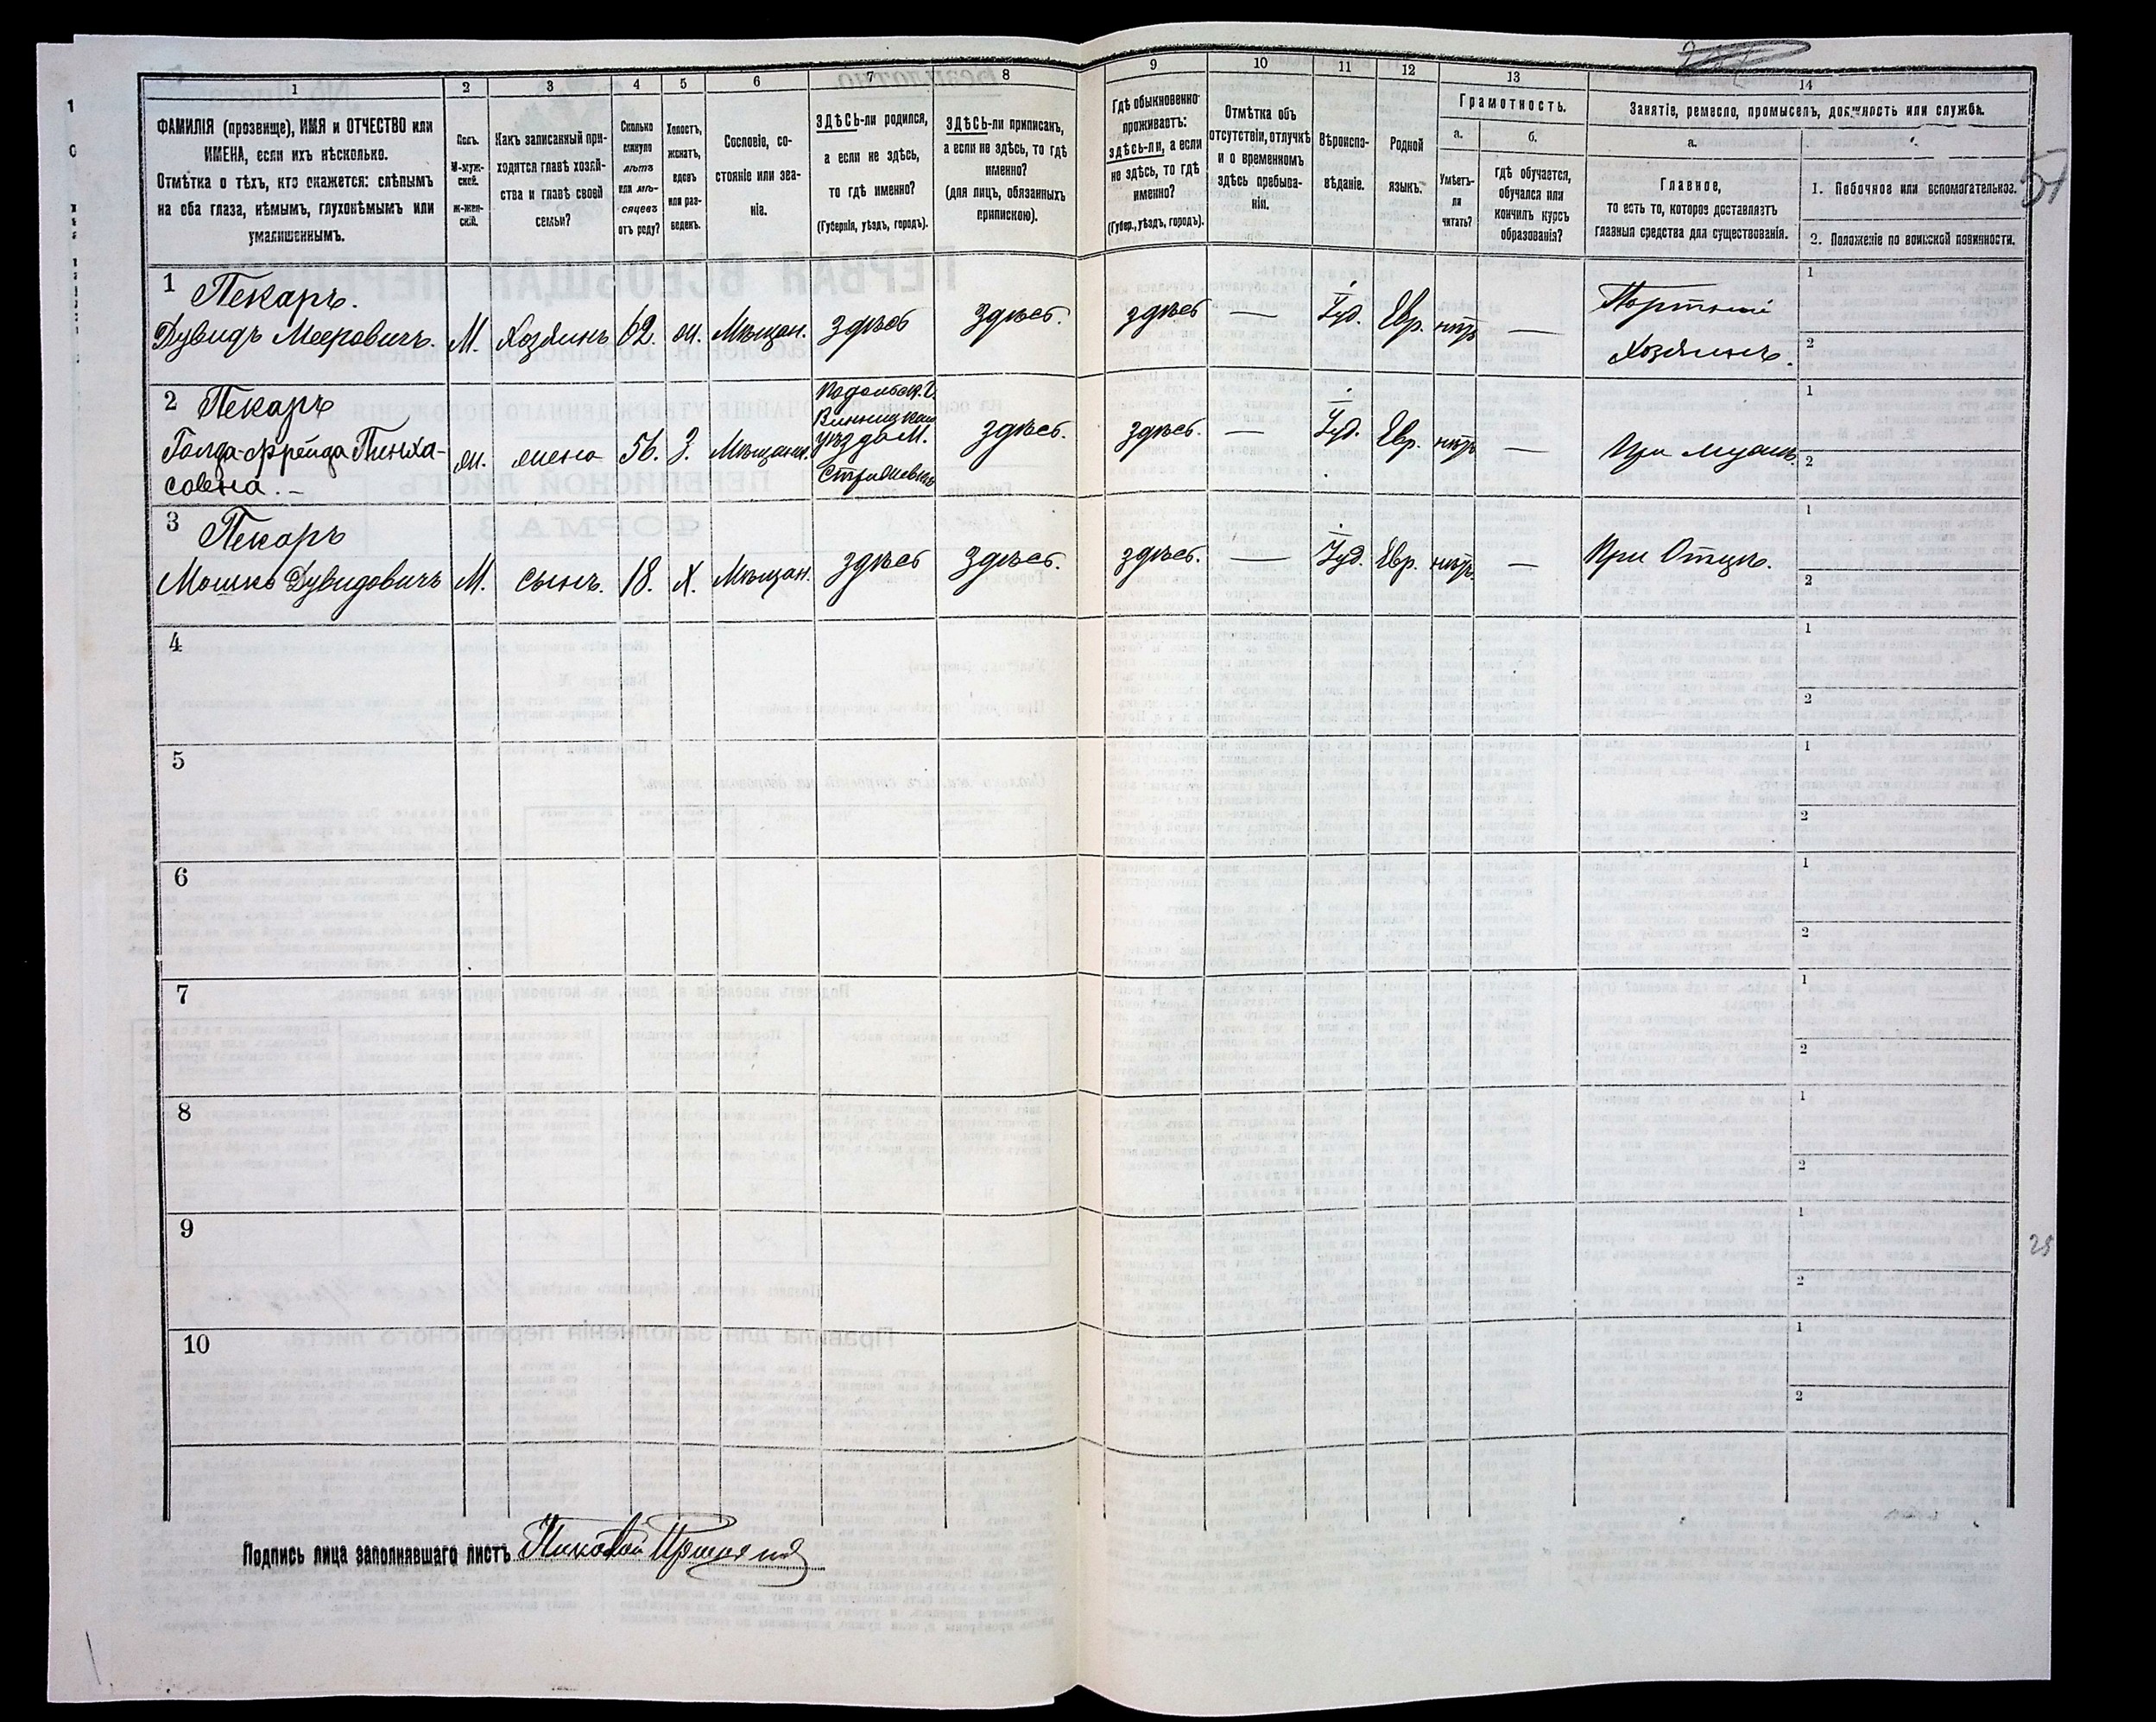 1 2 3 4 5 6 7 8 9 10 11 12 13 14
ФАМИЛІЯ (прозвище), ИМЯ и ОТЧЕСТВО или
ИМЕНА, если ихъ нѣсколько.
Отмѣтка о тѣхъ, кто окажется: слѣпымъ
на оба глаза, нѣмымъ, глухонѣмымъ или
умалишеннымъ.
Полъ.
М-муж-
ской.
ж-жен-
скій.
Какъ записанный при-
ходится главѣ хозяй-
ства и главѣ своей
семьи?
Сколько
минуло
лѣтъ
или мѣ-
сяцевъ
отъ роду?
Холостъ,
женатъ,
вдовъ
или раз-
веденъ.
Сословіе, со-
стояніе или зва-
ніе.
ЗДѢСЬ-ли родился,
а если не здѣсь,
то гдѣ именно?
(Губернія, уѣздъ, городъ).
ЗДѢСЬ-ли приписанъ,
а если не здѣсь, то гдѣ
именно?
(для лицъ, обязанныхъ
припискою).
Гдѣ обыкновенно
проживаетъ:
здѣсь-ли, а если
не здѣсь, то гдѣ
именно?
(Губер., уѣздъ, городъ).
Отмѣтка объ
отсутствіи, отлучкѣ
и о временномъ
здѣсь пребыва-
ніи.
Вѣроиспо-
вѣданіе.
Родной
языкъ.
Грамотность.
а.
Умѣетъ-
ли
читать?
б.
гдѣ обучается,
обучался или
кончилъ курсъ
образованія?
Занятіе, ремесло, промыселъ, должность или служба.
а.
Главное,
то есть то, которое доставляетъ
главныя средства для существованія.
1. Побочное или вспомогательное.
2. Положеніе по воинской повинности.
51
1 Пекарь.
Дувидъ Мееровичъ. М. Хозяинъ 62. ж. Мѣщан. здѣсь здѣсь. здѣсь — Іуд. Евр. нѣтъ — Портной
Хозяинъ.
1
2
2 Пекарь
Голда-Фрейда Пинха-
совна. — ж. жена 56. З. Мѣщанк. Подольск. Г.
Винницкаго
уѣзда М.
здѣсь. здѣсь. — Іуд. Евр. нѣтъ — При мужѣ.
1
2
3 Пекарь
Мошко Дувидовичъ М. сынъ. 18. Х. Мѣщан. здѣсь здѣсь. здѣсь. — Іуд. Евр. нѣтъ. — При Отцѣ.
1
2
4
1
2
5
1
2
6
1
2
7
1
2
8
1
2
9
1
2
25
10
1
2
Подпись лица заполнявшаго листъ